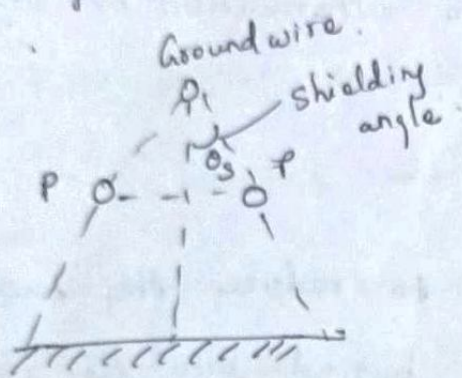 Ground wire.
shielding
angle
θs
P
P